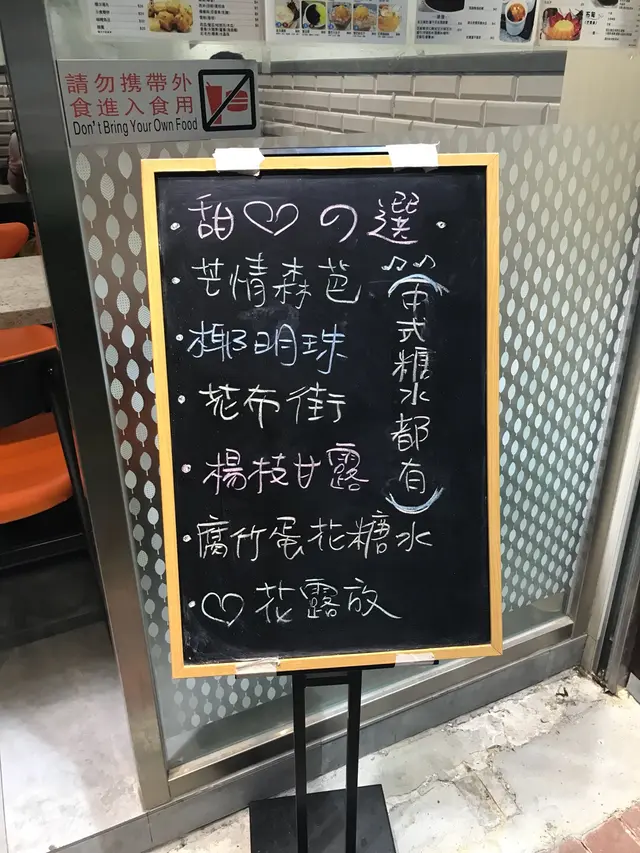 請勿攜帶外
食進入食用
Don't Bring Your Own Food
甜♡の選
芒情森芭
椰明珠
花布街
楊枝甘露
腐竹蛋花糖水
♡花露放
(中式糖水都有)